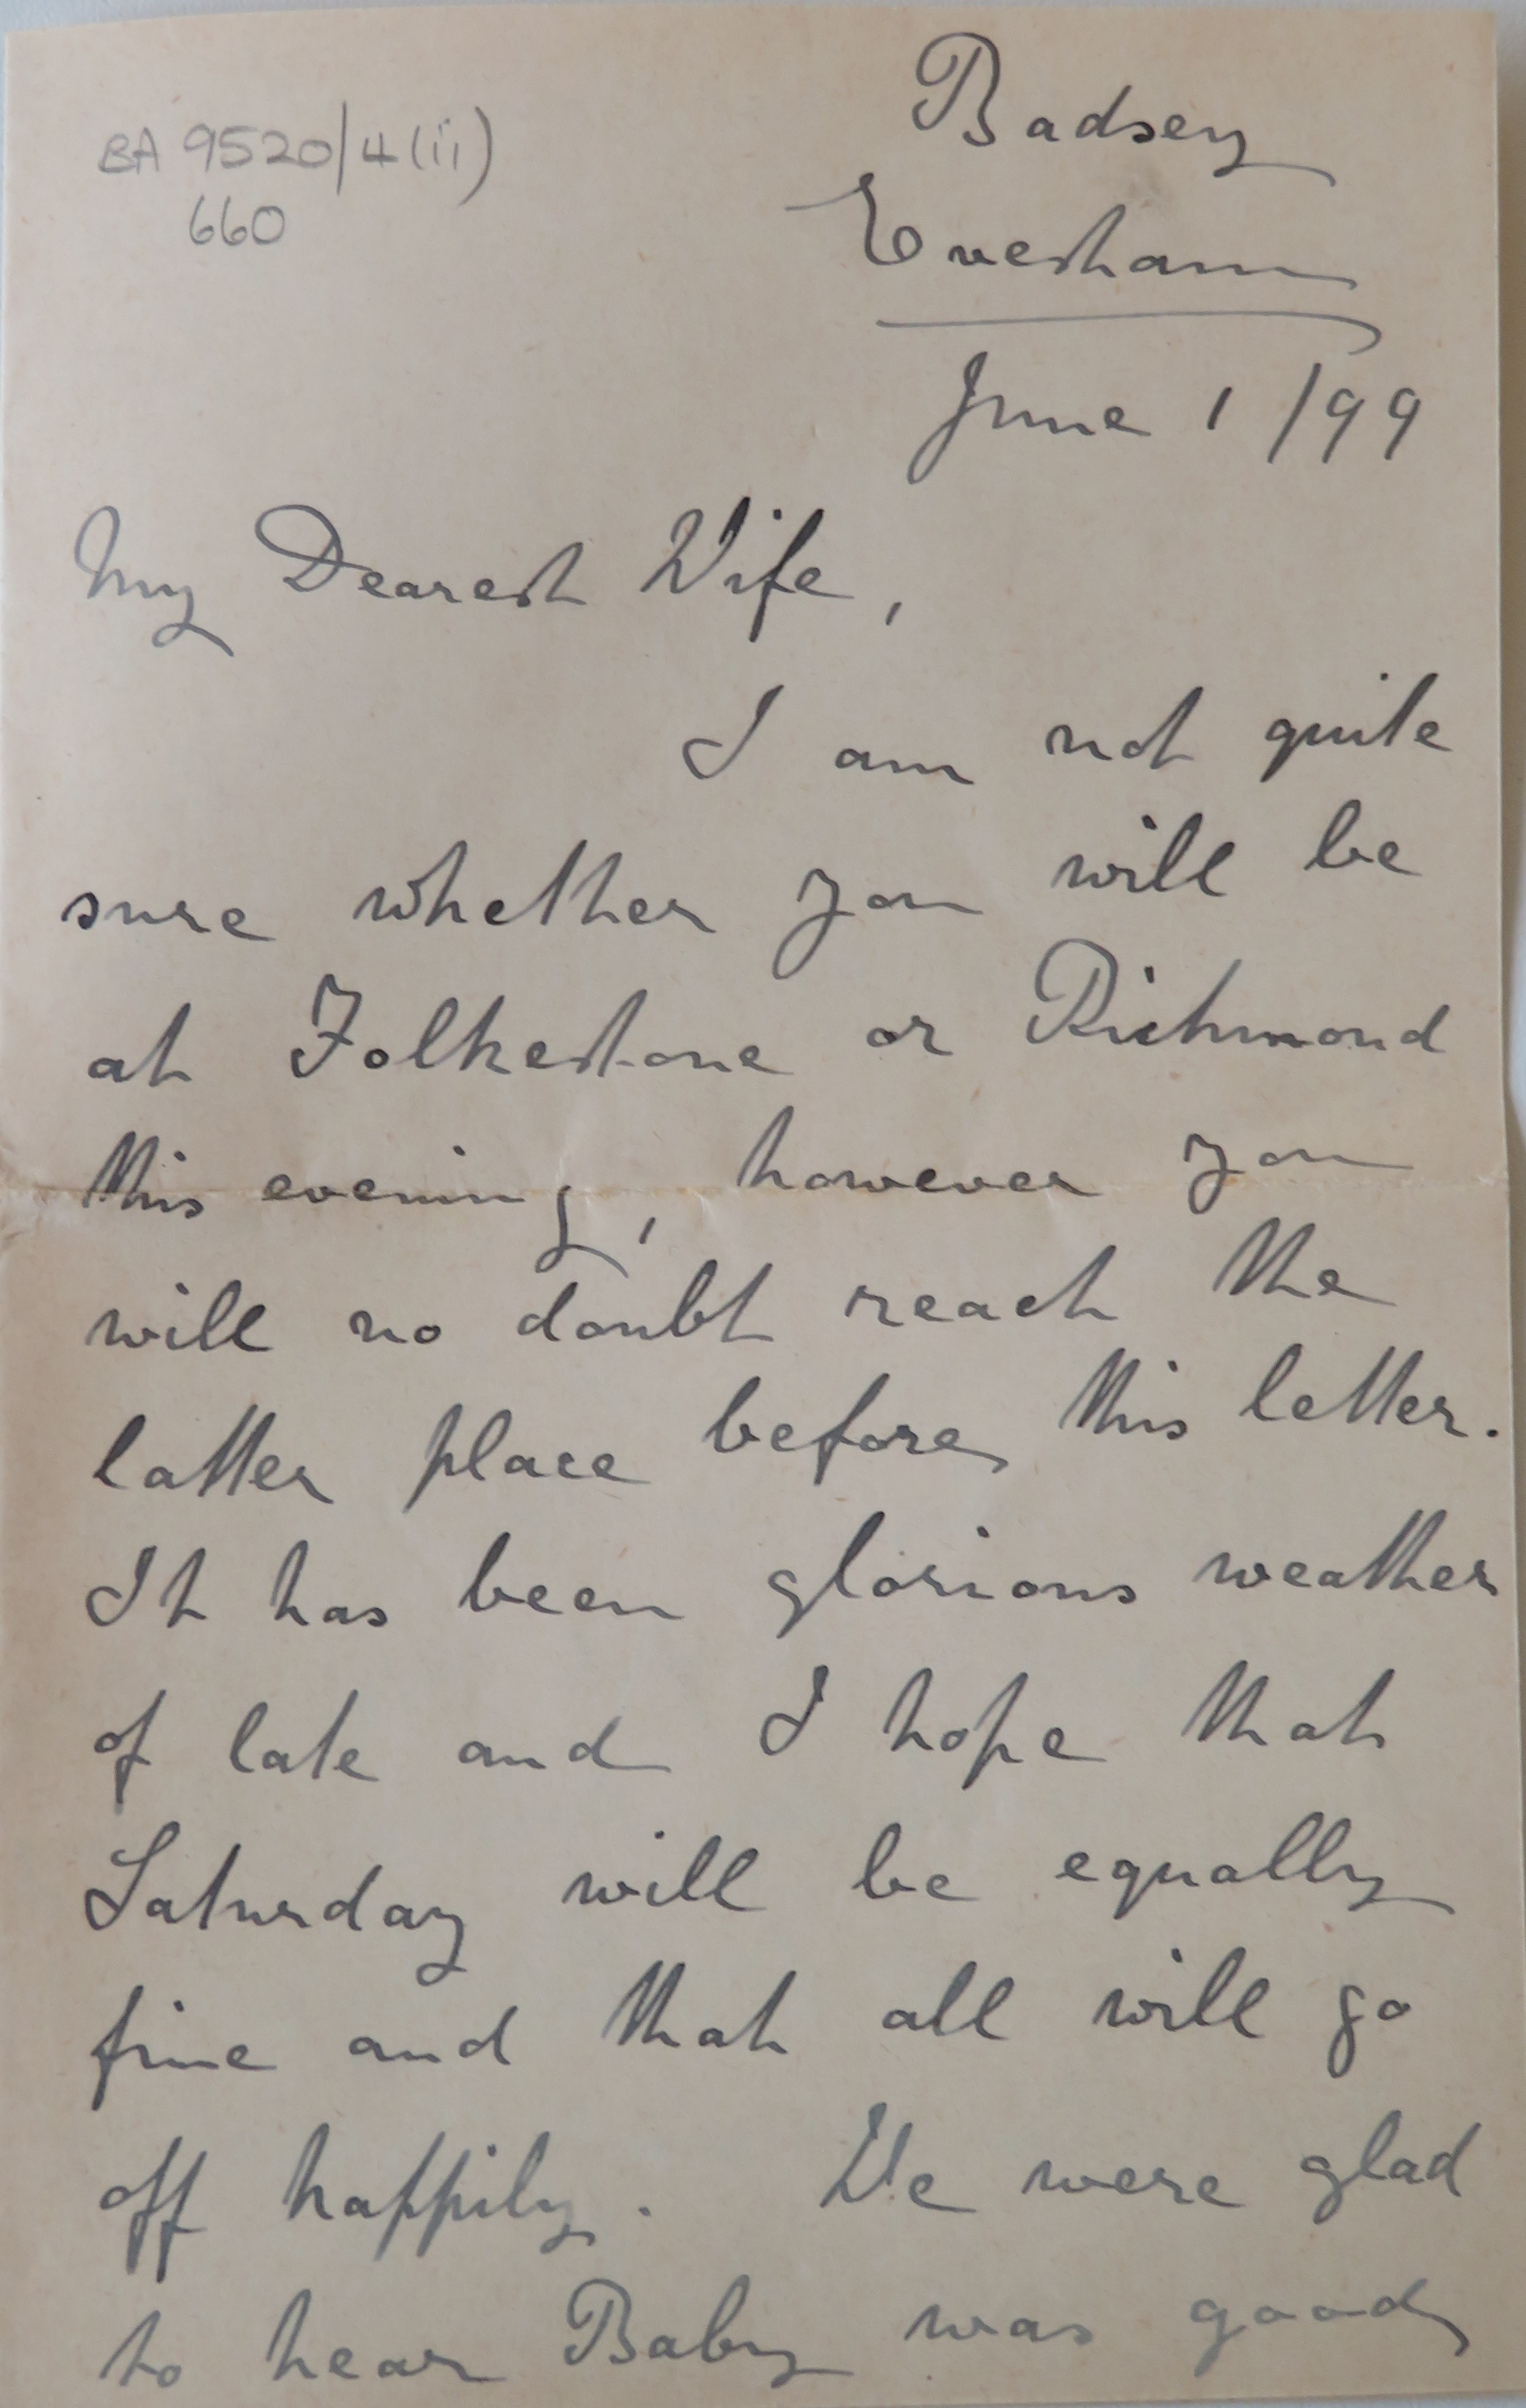 BA 9520/4(ii)
660
Badsey
Evesham
June 1/99
My Dearest Wife,
I am not quite
sure whether you will be
at Folkestone or Richmond
this evening, however you
will no doubt reach the
latter place before this letter.
It has been glorious weather
of late and I hope that
Saturday will be equally
fine and that all will go
off happily. We were glad
to hear Baby was good